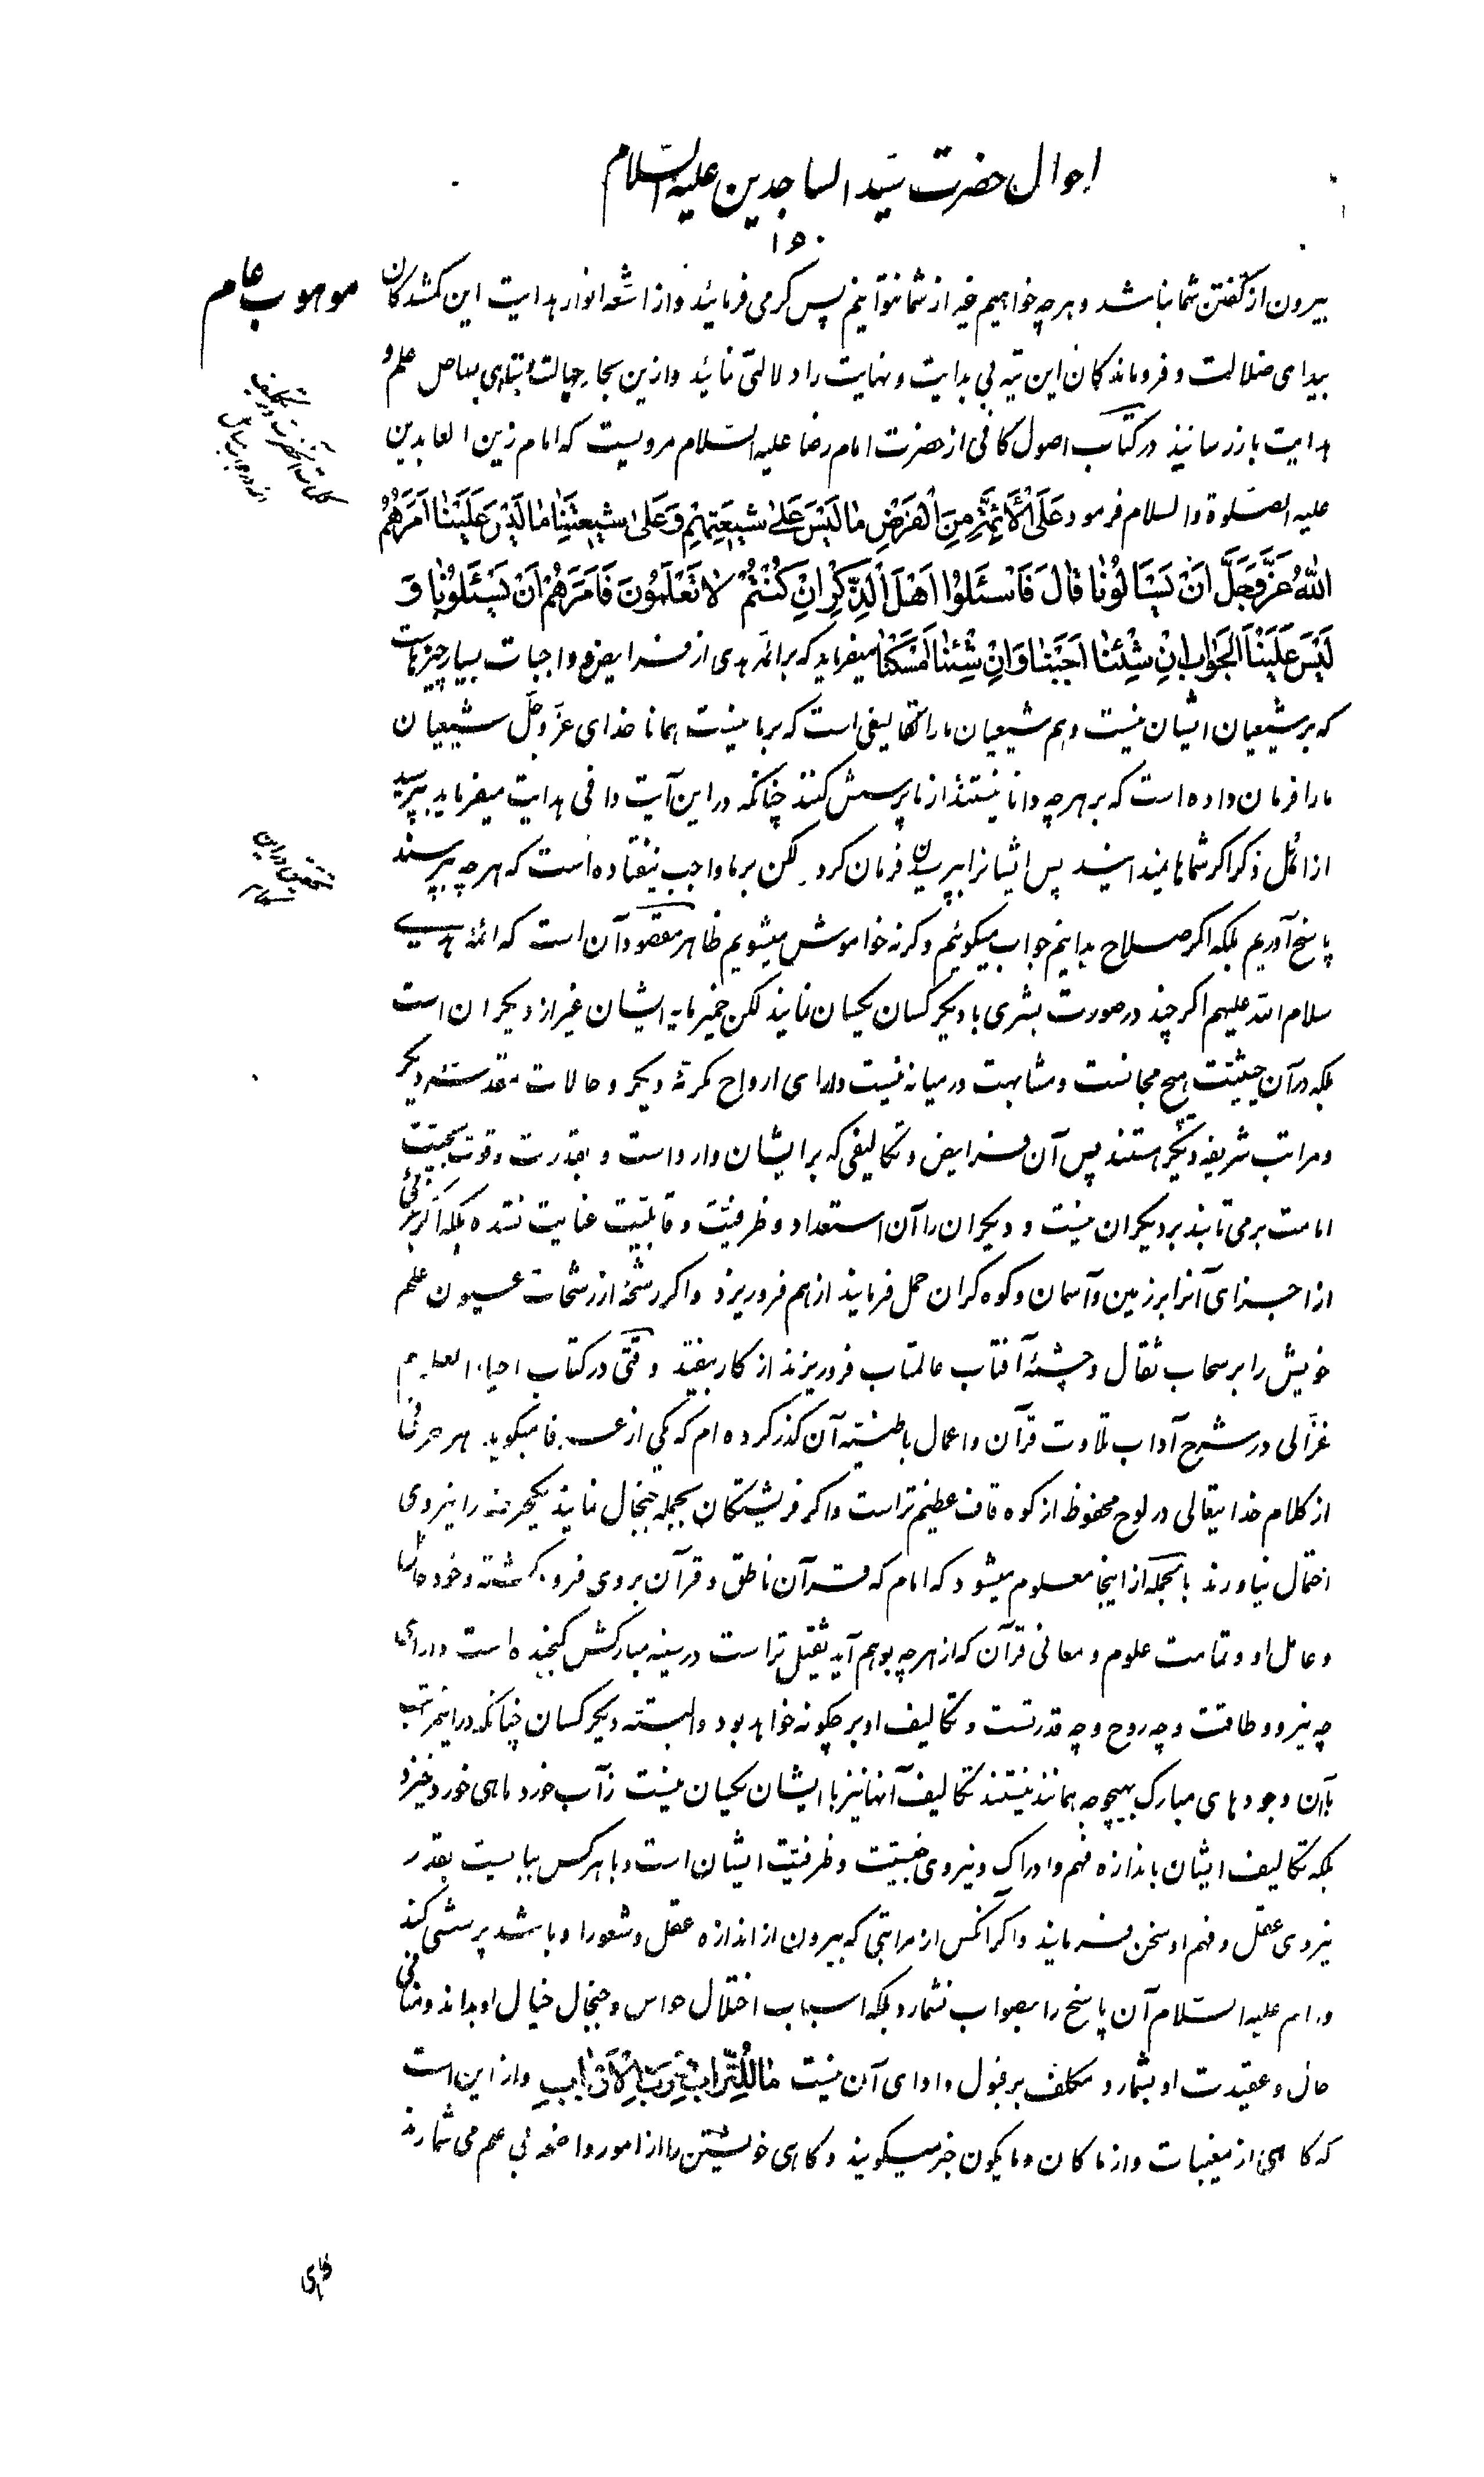 احوال حضرت سید الساجدین علیه السلام
۱۵۰
موهوب عام
بیرون از گفتن شما نباشد و هر چه خواهیم خبر از شما نتوانیم پس کرمی فرمائید و از اشعه انوار هدایت این گمشدگان
بیدای ضلالت و فروماندگان این تیه بی بدایت و نهایت را دلالتی نمائید و ازین بحار جهالت و تباهی بساحل علم و
هدایت باز رسانید در کتاب اصول کافی از حضرت امام رضا علیه السلام مرویست که امام زین العابدین
علیه الصلوة والسلام فرمود عَلَى الْأَئِمَّةِ مِنَ الْفَرْضِ مَا لَيْسَ عَلَى شِيعَتِهِمْ وَعَلَى شِيعَتِنَا مَا لَيْسَ عَلَيْنَا اَمَرَهُمُ
اللهُ عَزَّوَجَلَّ اَنْ يَسْئَالُونَا قَالَ فَاسْئَلُوا اَهْلَ الذِّكْرِ اِنْ كُنْتُمْ لَا تَعْلَمُونَ فَاَمَرَهُمْ اَنْ يَسْئَلُونَا وَ
لَيْسَ عَلَيْنَا الْجَوَابُ اِنْ شِئْنَا اَجَبْنَا وَاِنْ شِئْنَا اَمْسَكْنَا میفرماید که بر ائمه هدی از فرایض و واجبات بسیار چیزهاست
که بر شیعیان ایشان نیست و هم شیعیان ما را تکالیفی است که بر ما نیست همانا خدای عزّ و جلّ شیعیان
ما را فرمان داده است که بر هر چه دانا نیستند از ما پرسش کنند چنانکه در این آیت وافی هدایت میفرماید بپرسید
از اهل ذکر اگر شماها نمیدانید پس ایشانرا بپرسیدن فرمان کرد لکن بر ما واجب نیفتاده است که هر چه بپرسند
پاسخ آوریم بلکه اگر صلاح بدانیم جواب میگوئیم و گرنه خواموش میشویم ظاهر مقصود آن است که ائمه هدی
سلام الله علیهم اگر چند در صورت بشری با دیگر کسان یکسان نمایند لکن خمیر مایه ایشان غیر از دیگران است
بلکه در آن حیثیت هیچ مجانست و مشابهت در میانه نیست و دارای ارواح مکرمهٔ دیگر و حالات مقدسه دیگر
و مراتب شریفه دیگر هستند پس آن فرایض و تکالیفی که بر ایشان وارد است و بقدرت و قوت
امامت بر می تابند بر دیگران نیست و دیگران را آن استعداد و ظرفیت و قابلیت عنایت نشده بلکه اگر جزئی
از اجزای آنرا بر زمین و آسمان و کوه گران حمل فرمایند از هم فرو ریزد و اگر رشحهٔ از رشحات عیون علم
خویش را بر سحاب ثقال و چشمهٔ آفتاب عالمتاب فرو ریزند از کار بیفتد وقتی در کتاب احیاء العلوم
غزّالی در شرح آداب تلاوت قرآن و اعمال باطنیه آن گذر کرده ام که یکی از عرفا میگوید هر حرفی
از کلام خدایتعالی در لوح محفوظ از کوه قاف عظیم تر است و اگر فریشتگان بجمله چنجال نمایند یکحرف را نیروی
احتمال نیاورند بالجمله از اینجا معلوم میشود که امام که قرآن ناطق و قرآن بروی فرو گشته و خود حامل
و عامل او و تمامت علوم و معانی قرآن که از هر چه بوهم آید ثقیل تر است در سینه مبارکش گنجیده است دارای
چه نیرو و طاقت و چه روح و چه قدرتست و تکالیف او بر چگونه خواهد بود و البته دیگر کسان چنانکه در اینمراتب
بآن وجودهای مبارک بهیچوجه همانند نیستند تکالیف آنها نیز با ایشان یکسان نیست ز آب خورد ماهی خورد خیزد
بلکه تکالیف ایشان باندازه فهم و ادراک و نیروی جنبیت و ظرفیت ایشان است و با هر کس ببایست بقدر
نیروی عقل و فهم او سخن فرمایند و اگر آنکس از مراتبی که بیرون از اندازه عقل و شعور او باشد پرسشی کند
و امام علیه السلام آن پاسخ را بصواب نشمارد بلکه اسباب اختلال حواس و چنجال خیال او بداند و منافی
حال و عقیدت او بشمارد مکلف بر قبول و ادای آن نیست مَا لِلتُّرَابِ وَ رَبِّ الْاَرْبَابِ و از این است
که گاهی از مغیبات و از ما کان و ما یکون خبر میگویند و گاهی خویشتن را از امور واضحه بی علم می شمارند
گاهی